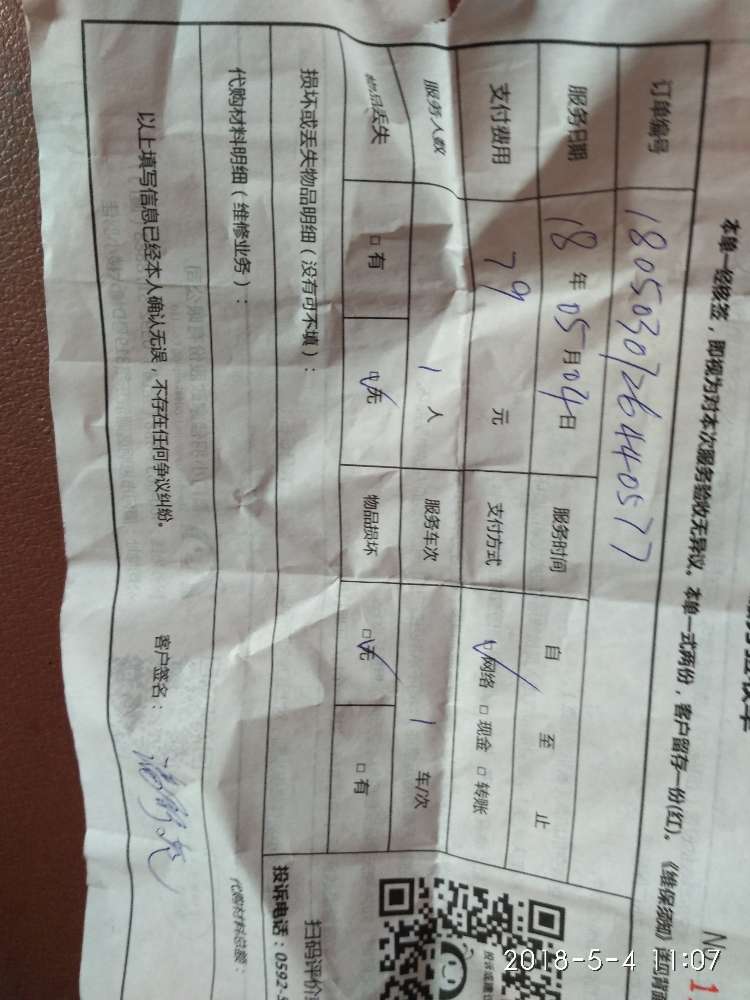 本单一经核签，即视为对本次服务验收无异议。本单一式两份，客户留存一份(红)。《维保须知》
订单编号 180503072644 0577
服务日期 18 年 05 月 04 日 服务时间 自 至 止
支付费用 79 元 支付方式 ☑ 网络 □ 现金 □ 转账
服务人数 1 人 服务车次 1 车/次
物品丢失 □ 有 ☑ 无 物品损坏 ☑ 无 □ 有
损坏或丢失物品明细（没有可不填）：
代购材料明细（维修业务）： 代购材料总额：
以上填写信息已经本人确认无误，不存在任何争议纠纷。 客户签名：
扫码评价
投诉电话：0592-5
2018-5-4 11:07